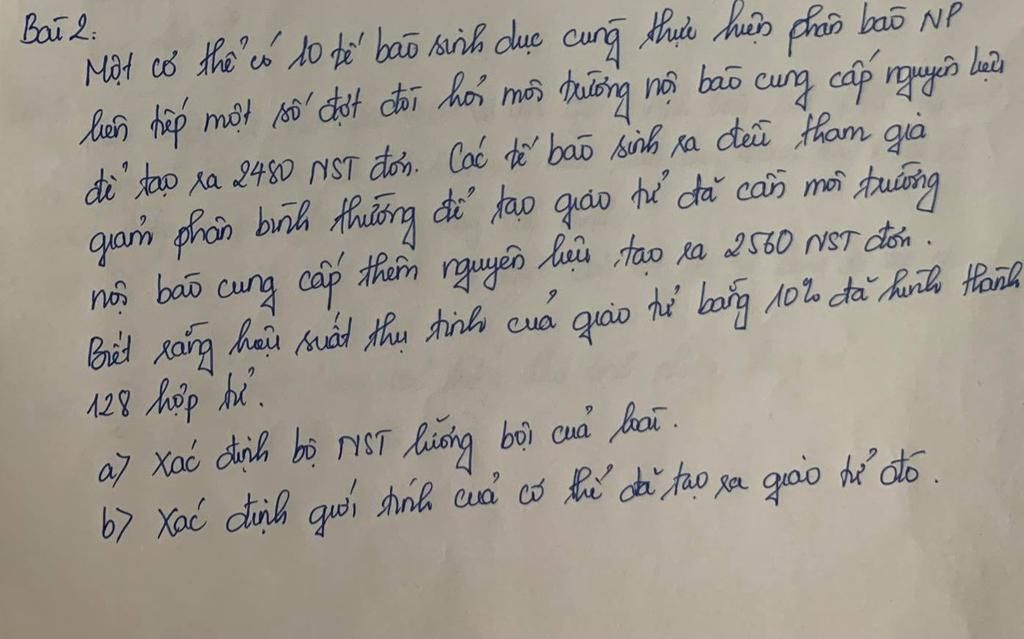 Bài 2:
Một cơ thể có 10 tế bào sinh dục cùng thực hiện phân bào NP
liên tiếp một số đợt đòi hỏi môi trường nội bào cung cấp nguyên liệu
để tạo ra 2480 NST đơn. Các tế bào sinh ra đều tham gia
giảm phân bình thường để tạo giao tử đã cần môi trường
nội bào cung cấp thêm nguyên liệu tạo ra 2560 NST đơn.
Biết rằng hiệu suất thụ tinh của giao tử bằng 10% đã hình thành
128 hợp tử.
a) Xác định bộ NST lưỡng bội của loài.
b) Xác định giới tính của cơ thể đã tạo ra giao tử đó.